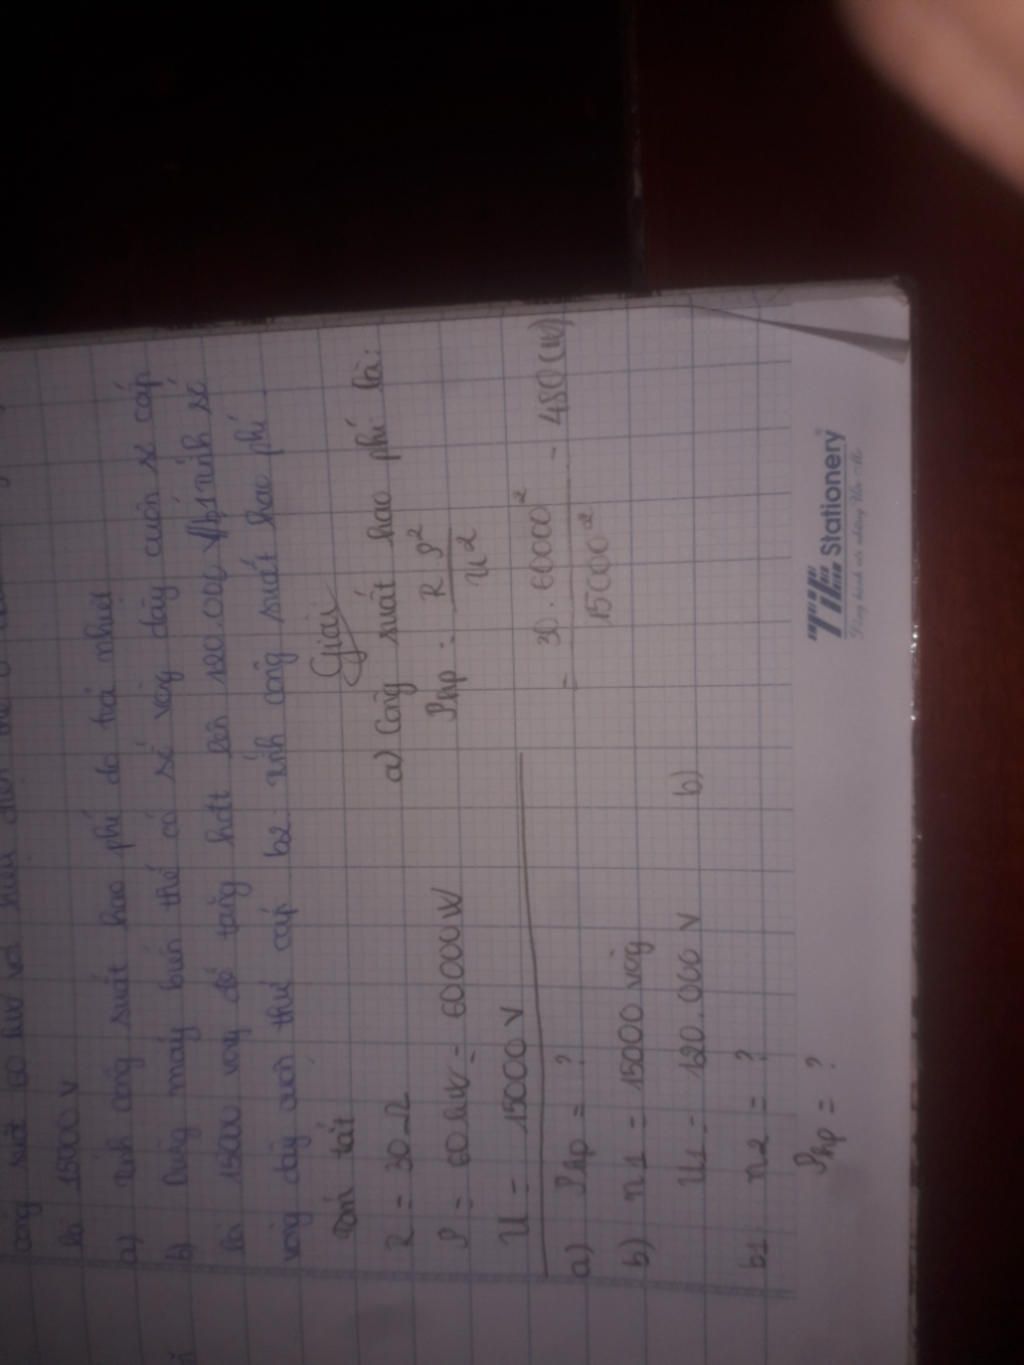 công suất 60 kW với hiệu điện thế
là 15000 V
a) tính công suất hao phí do toả nhiệt
b) Dùng máy biến thế có số vòng dây cuộn sơ cấp
là 15000 vòng để tăng hđt lên 120.000 V b1 tính số
vòng dây cuộn thứ cấp b2: tính công suất hao phí
Tóm tắt
R = 30 Ω
P = 60 kW = 60000W
U = 15000 V
a) Php = ?
b) n1 = 15000 vòng
U1 = 120.000 V
b1 n2 = ?
Php = ?
Giải
a) Công suất hao phí là:
Php = R P² / U²
= 30 . 60000² / 15000² = 480 (W)
b)
TiTi Stationery